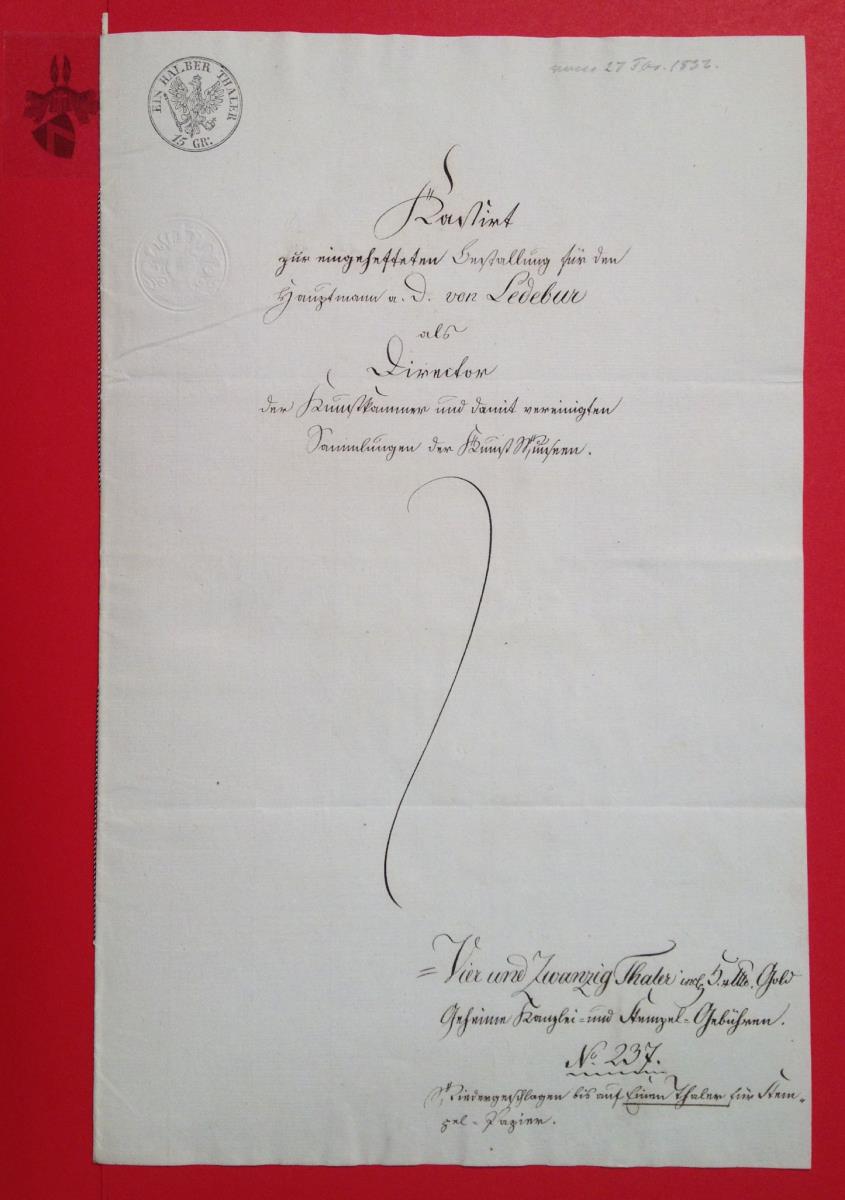 EIN HALBER THALER
15 GR:
27 Febr. 1832.
Kassirt
zur eingehefteten Bestallung für den
Hauptmann a. D. von Ledebur
als
Director
der Kunstkammer und damit vereinigten
Sammlungen der Kunst Museen.
= Vier und Zwanzig Thaler incl. Gold
Geheime Kanzlei- und Stempel-Gebühren.
No. 237.
Niedergeschlagen bis auf Einen Thaler für Stem-
pel-Papier.